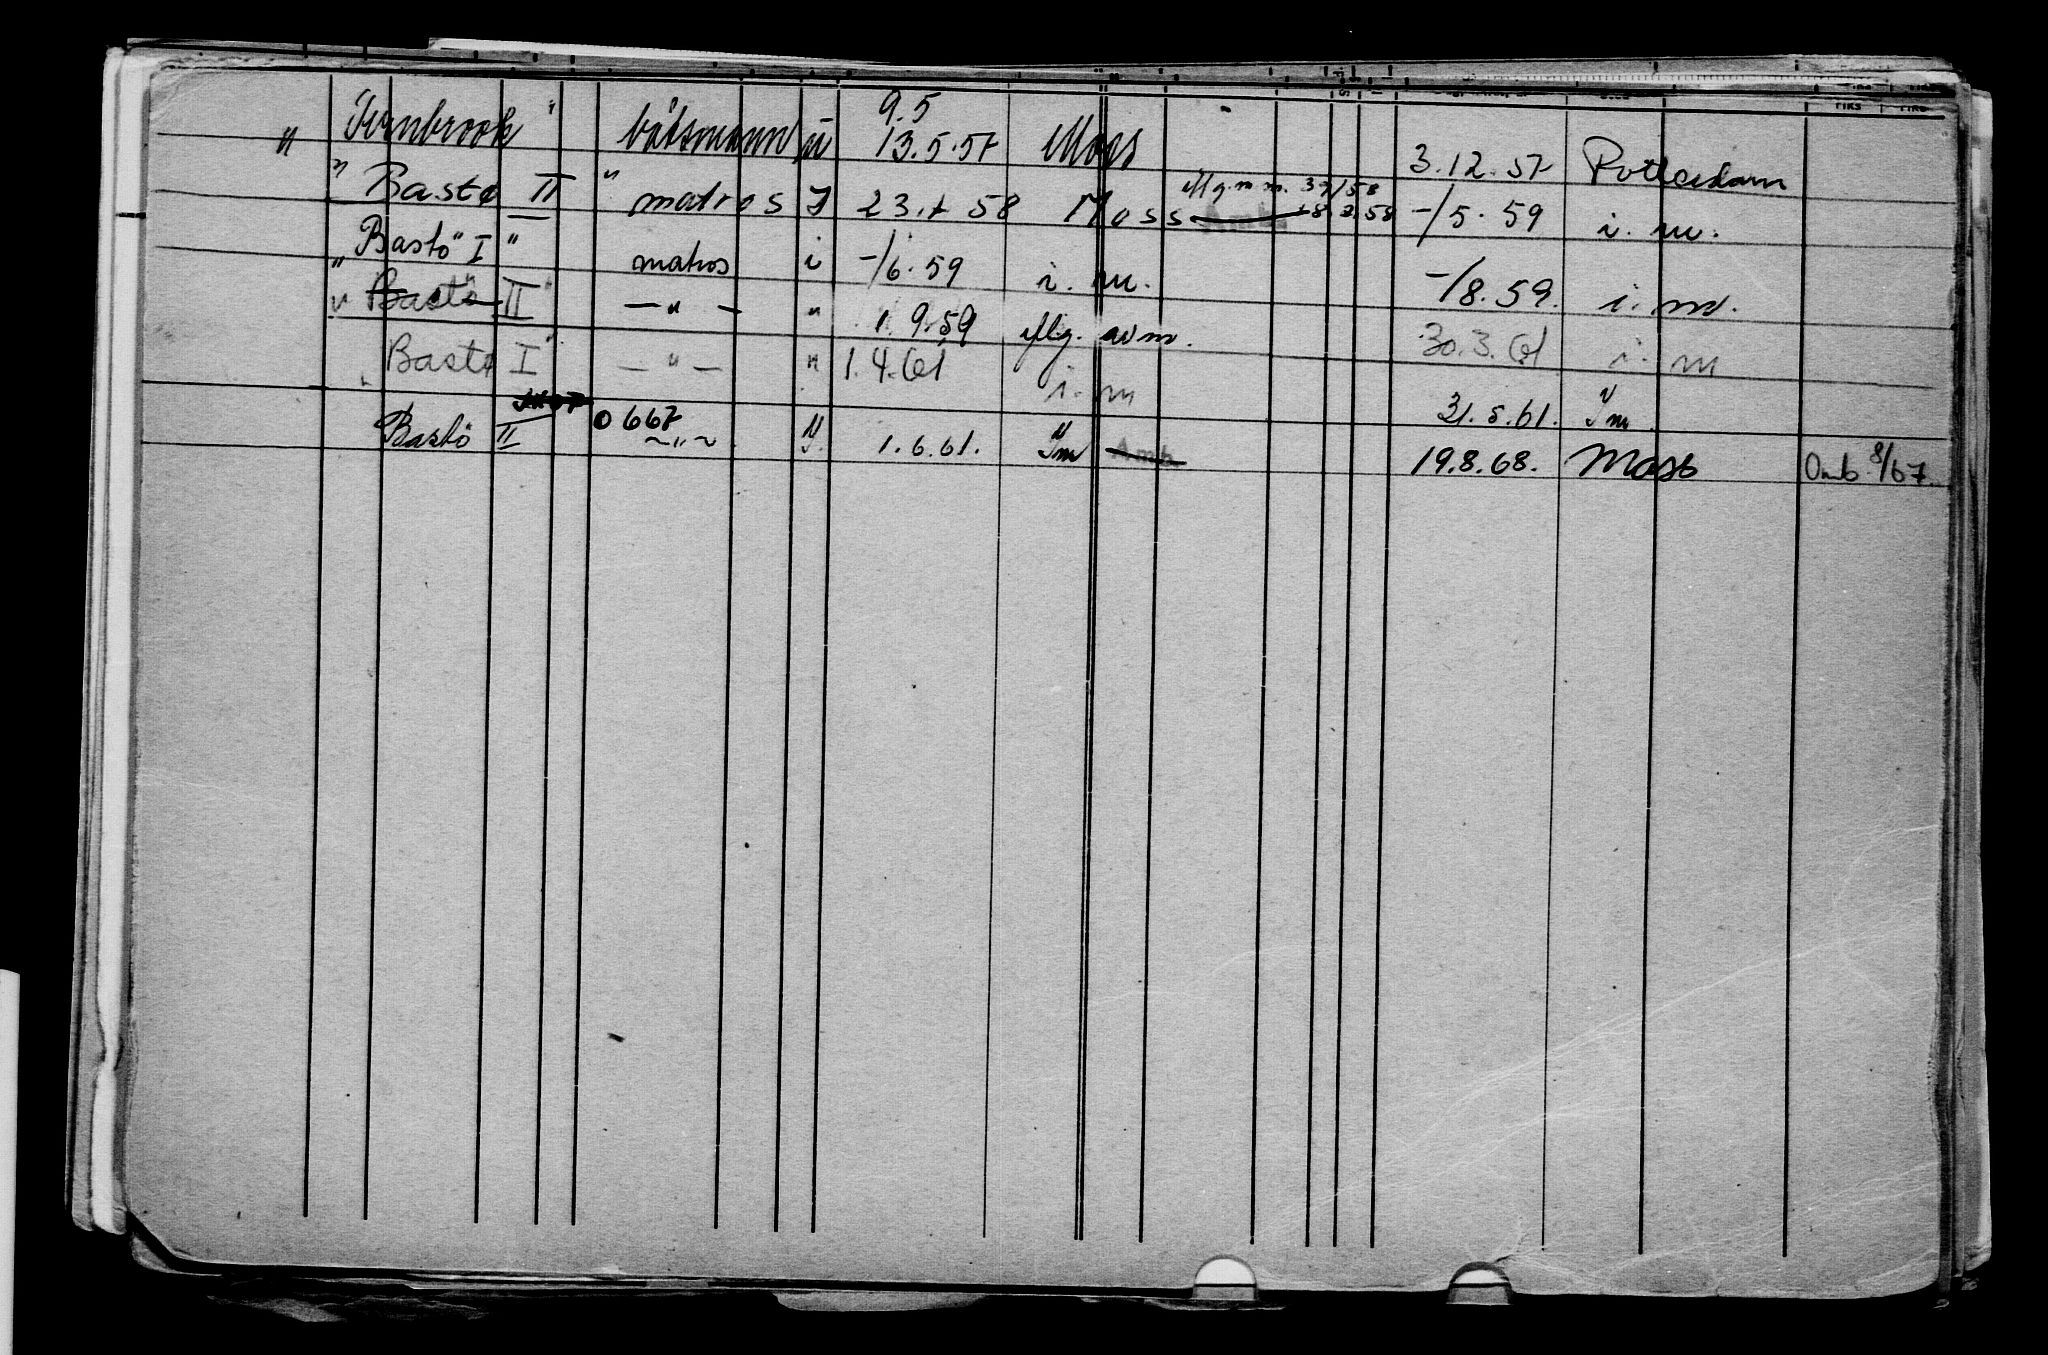 9.5
" båtsmann u 13.5.57 Moss 3.12.57 Rotterdam
" Bastø II " matros I 23.1 58 Moss -/5.59 i. m.
"Bastö" I " matros i -/6.59 i. m. -/8.59. i. m.
" Bastö II" — " — " 1.9.59 iflg. av m. 30.3.61 i. m
" Bastø I" — " — " 1.4.61 i. m 31.5.61. I m.
0667
Bastö II ~"~ I. 1.6.61. I m Amb 19.8.68. Moss Omb 8/67.